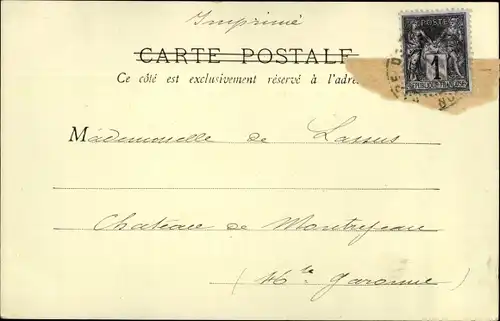 Imprimé
CARTE POSTALE
POSTE
Ce côté est exclusivement réservé à l'adre
1
REPUBLIQUE FRANÇAISE
Mademoiselle de Lassus
Chateau de Montrejeau
(Hte Garonne)